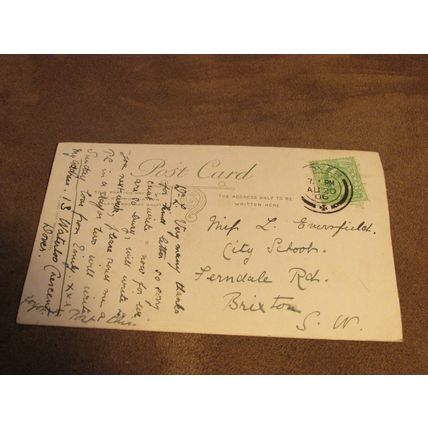 Post Card
THE ADDRESS ONLY TO BE
WRITTEN HERE
7. PM
AU 20
06
Miss L. Eversfield.
City School.
Ferndale Rd.
Brixton
S. W.
Dr. L. Very many thanks
for kind letter so sorry
can't write now for we
are so busy, will write
next week please send me a
P.C. in a day or two will write
Sunday love from Emily xxx
My address. 13 Waterloo Crescent
Dover.